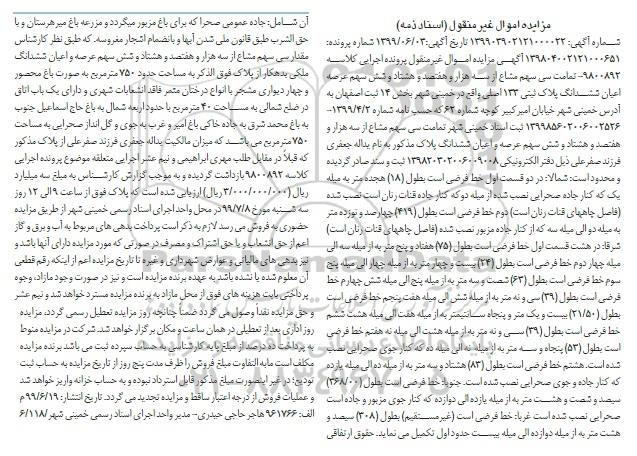 مزایده اموال غیر منقول (اسناد ذمه)
شماره آگهی: ۱۳۹۹۰۳۹۰۲۱۲۱۰۰۰۰۲۲ تاریخ آگهی:۱۳۹۹/۰۶/۰۳ شماره پرونده:
۱۳۹۸۰۴۰۰۲۱۲۱۰۰۰۶۵۱ آگهی مزایده اموال غیرمنقول پرونده اجرایی کلاسه
۹۸۰۰۸۹۲- تمامت سی سهم مشاع از سه هزار و هفتصد و هشتاد و شش سهم عرصه
اعیان ششدانگ پلاک ثبتی ۱۳۳ اصلی واقع در خمینی شهر بخش ۱۴ ثبت اصفهان به
آدرس خمینی شهر خیابان امیرکبیر کوچه شماره ۶۲ که حسب نامه شماره ۱۳۹۹/۴/۲-
۱۳۹۹۸۵۶۰۲۰۰۶۰۰۲۵۲۶ ثبت اسناد خمینی شهر تمامت سی سهم مشاع از سه هزار و
هفتصد و هشتاد و شش سهم عرصه و اعیان ششدانگ پلاک مذکور به نام یداله جعفری
فرزند صفرعلی ذیل دفتر الکترونیکی ۱۳۹۸۲۰۳۰۲۰۰۶۰۰۹۰۰۸ ثبت و سند صادر گردیده
و محدود است: شمالا: در دو قسمت اول خط فرضی است بطول (۱۸) هجده متر به میله
یک که کنار جاده صحرایی نصب شده از میله دو که کنار جاده قنات رنان است نصب شده
(فاصل چاههای قنات رنان است) دوم خط فرضی است بطول (۴۱۹) چهارصد و نوزده متر
به میله دو الی میله سه که از کنار جاده مزبور نصب شده (فاصل چاههای قنات رنان است)
شرقا: در هشت قسمت اول خط فرضی است بطول (۷۵) هفتاد و پنج متر به از میله سه الی
میله چهار دوم خط فرضی است بطول (۲۴) بیست و چهار متر به از میله چهار الی میله پنج
سوم خط فرضی است بطول (۶۳) شصت و سه متر به از میله پنج الی میله شش چهارم خط
فرضی است بطول (۳۹) سی و نه متر به از میله شش الی میله هفت پنجم خط فرضی است
بطول (۲۱/۵۰) بیست و یک متر و پنجاه سانتیمتر به از میله هفت الی میله هشت ششم
خط فرضی است بطول (۳۹) سی و نه متر به از میله هشت الی میله نه هفتم خط فرضی
است بطول (۵۳) پنجاه و سه متر به از میله نه الی میله ده که کنار جوی صحرایی نصب
شده است. هشتم خط فرضی است بطول (۸۳) هشتاد و سه متر به از میله ده الی میله یازده
که کنار جاده و جوی صحرایی نصب شده است. جنوبا: خط فرضی است بطول (۳۶۸/۰۰)
سیصد و شصت و هشت متر به از میله یازده الی دوازده که کنار جوی مزبور و جاده است
صحرایی نصب شده است غربا: خط فرضی است (غیرمستقیم) بطول (۳۰۸) سیصد و
هشت متر به از میله دوازده الی میله بیست حدود اول تکمیل می نماید. حقوق ارتفاقی
آن شامل: جاده عمومی صحرا که برای باغ مزبور میگردد و مزرعه باغ میرهرستان و با
حق الشرب طبق قانون ملی شدن آبها و بانضمام اشجار مغروسه. که طبق نظر کارشناس
مقدار سی سهم مشاع از سه هزار و هفتصد و هشتاد و شش سهم عرصه و اعیان ششدانگ
ملکی بدهکار از پلاک فوق الذکر به مساحت حدود ۷۵۰ مترمربع به صورت باغ محصور
و چهار دیواری مشجر با انواع درختان مثمر فاقد انشعابات شهری و دارای یک باب اتاق
در ضلع شمالی به مساحت ۴۰ مترمربع با حدود اربعه شمال به باغ حاج اسماعیل جنوب
به باغ محمد شرق به جاده خاکی باغ امیر و غرب به جوی و گل انداز صحرایی به مساحت
۷۵۰ مترمربع می باشد که میزان مالکیت یداله جعفری فرزند صفرعلی از پلاک مذکور
که قبلا در مقابل طلب مهری ابراهیمی و نیم عشر اجرایی متعلقه موضوع پرونده اجرایی
کلاسه ۹۸۰۰۸۹۲ بازداشت گردیده و به موجب گزارش کارشناس به مبلغ سه میلیارد
ریال (۳/۰۰۰/۰۰۰/۰۰۰ ریال) ارزیابی شده است که پلاک فوق از ساعت ۹ الی ۱۲ روز
سه شنبه مورخ ۹۹/۷/۸ در محل واحد اجرای اسناد رسمی خمینی شهر از طریق مزایده
حضوری به فروش می رسد لازم به ذکر است پرداخت بدهی های مربوط به آب و برق و گاز
اعم از حق انشعاب و یا حق اشتراک و مصرف در صورتی که مورد مزایده دارای آنها باشد و
نیز بدهی های مالیاتی و عوارض شهرداری و غیره تا تاریخ مزایده اعم از اینکه رقم قطعی
آن معلوم شده یا نشده باشد به عهده برنده مزایده است و نیز در صورت وجود مازاد، وجوه
پرداختی بابت هزینه های فوق از محل مازاد به برنده مزایده مسترد خواهد شد و نیم عشر
و حق مزایده نقدا وصول می گردد ضمنا چنانچه روز مزایده تعطیل رسمی گردد، مزایده
روز اداری بعد از تعطیلی در همان ساعت و مکان برگزار خواهد شد. شرکت در مزایده منوط
به پرداخت ده درصد از مبلغ پایه کارشناسی به حساب سپرده ثبت می باشد برنده مزایده
مکلف است مابه التفاوت مبلغ فروش را ظرف مدت پنج روز از تاریخ مزایده به حساب ثبت
تودیع؛ در غیر اینصورت مبلغ مذکور قابل استرداد نبوده و به حساب خزانه واریز خواهد شد
و عملیات فروش از درجه اعتبار ساقط و مزایده تجدید می گردد. تاریخ انتشار: ۹۹/۶/۱۹ م
الف: ۹۶۱۷۶۶ هاجر حاجی حیدری- مدیر واحد اجرای اسناد رسمی خمینی شهر ۶/۱۱۸